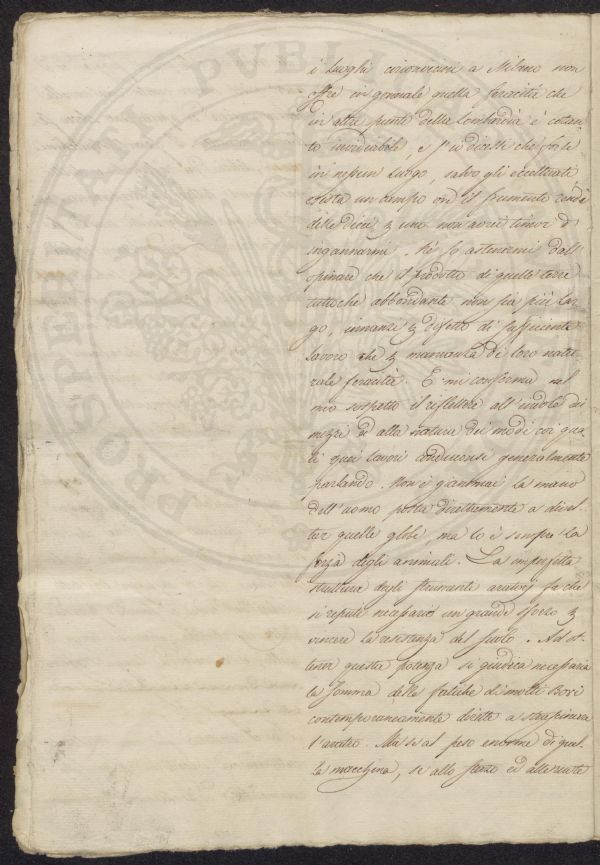 PROSPERITATI PVBLICAE
i luoghi circonvicini a Milano non
offre in generale quella feracità che
in altri punti della Lombardia è cotan-
to invidiabile, e s'io dicessi che forse
in nessun luogo, salvo gli eccettuati
esista un campo ond' il frumento renda
delle dieci uno non avrei timor d'
ingannarmi. Nè so astenermi dall'
opinare che il prodotto di quelle terre
tuttochè abbondante non sia più lar-
go, innanzi difetto di sufficiente
lavoro che mancanza di loro natu-
rale feracità. E mi conferma nel
mio sospetto il riflettere all'indole dei
mezzi ed alla natura dei modi coi qua-
li quei lavori conduconsi generalmente
parlando. Non è giammai la mano
dell'uomo posta direttamente a divel-
ler quelle glebe, ma lo è sempre la
forza degli animali. La imperfetta
struttura degli strumenti aratorj fa che
si reputi necessario un grande sforzo
vincere la resistenza del suolo. Ad ot-
tener questa potenza si giudica necessaria
la somma delle fatiche di molti Bovi
contemporaneamente diretti a strascinare
l'aratro. Ma si al peso enorme di quel-
la macchina, si allo sforzo ed